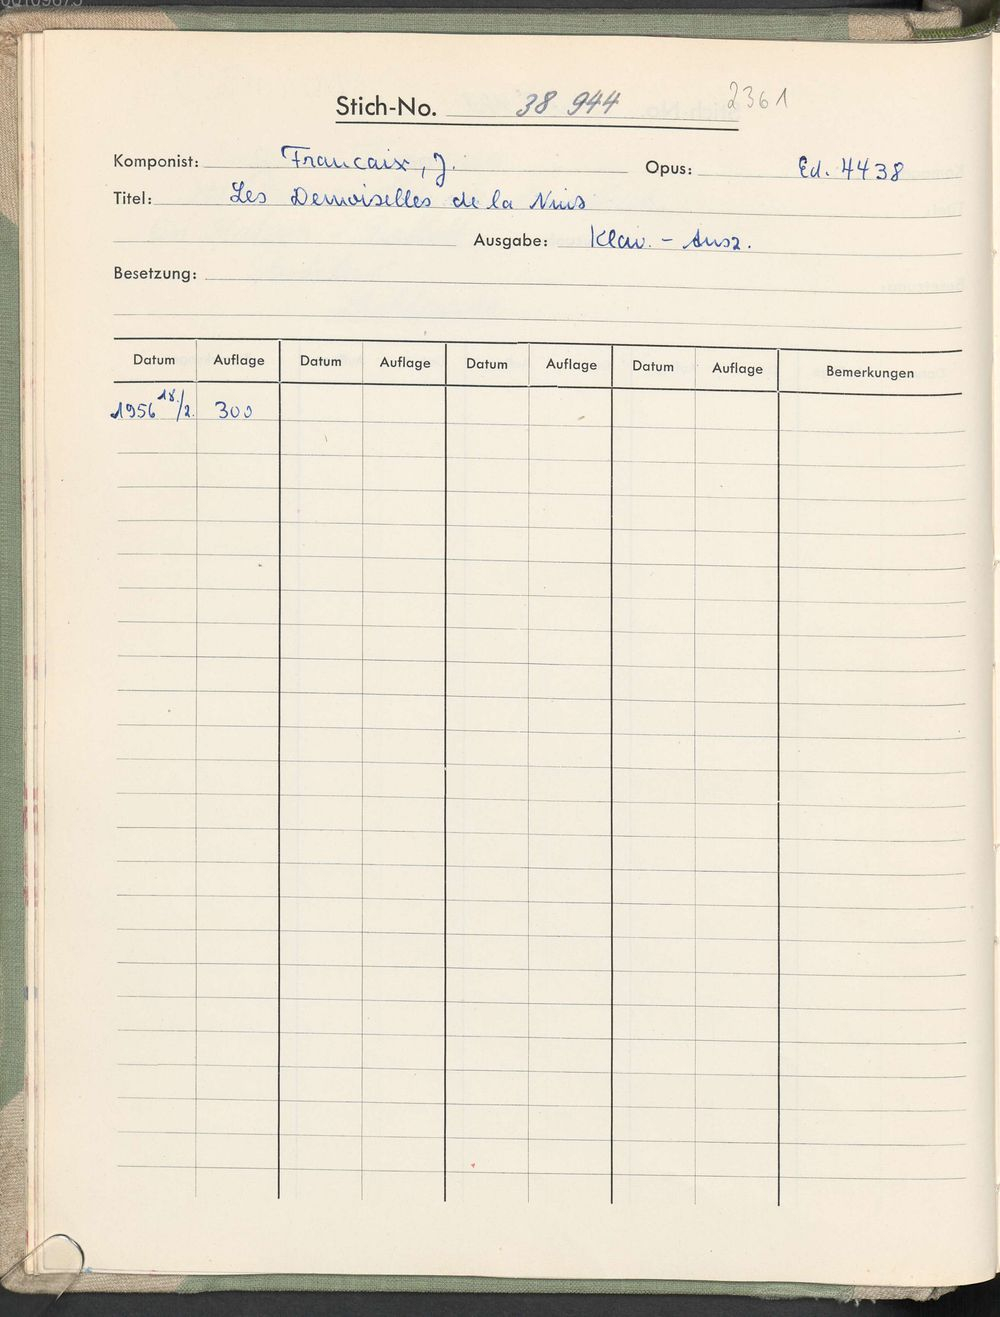 Stich-No. 38 944 2361
Komponist: Francaix, J. Opus: Ed. 4438
Titel: Les Demoiselles de la Nuis
Ausgabe: Klav. - Ausz.
Besetzung:
Datum Auflage Datum Auflage Datum Auflage Datum Auflage Bemerkungen
1956 18./2. 300